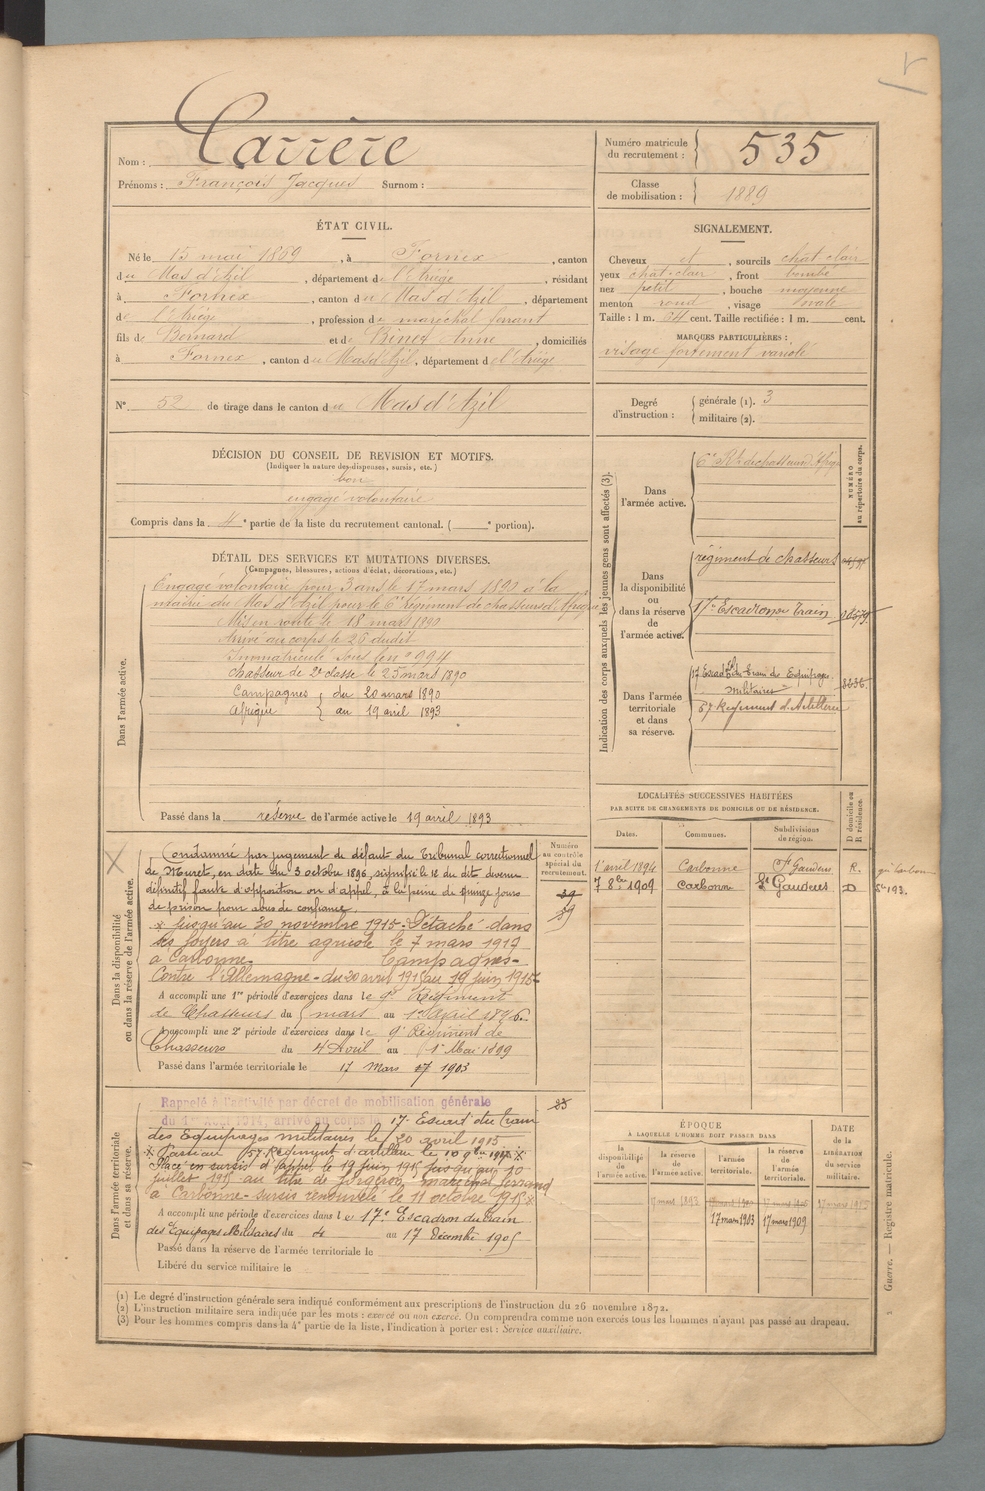 Nom : Carrère
Prénoms : François Jacques Surnom :
Numéro matricule du recrutement : 535
Classe de mobilisation : 1889
ÉTAT CIVIL.
Né le 15 mai 1869, à Fornex, canton
du Mas d'Azil, département de l'Ariège, résidant
à Fornex, canton du Mas d'Azil, département
de l'Ariège, profession de maréchal ferrant
fils de Bernard et de Binet Anne, domiciliés
à Fornex, canton du Mas d'Azil, département de l'Ariège
SIGNALEMENT.
Cheveux et, sourcils chat clair
yeux chat-clair, front bombé
nez petit, bouche moyenne
menton rond, visage ovale
Taille : 1 m. 64 cent. Taille rectifiée : 1 m. cent.
MARQUES PARTICULIÈRES :
visage fortement variolé
N° 52 de tirage dans le canton du Mas d'Azil
Degré d'instruction : générale (1). 3
militaire (2).
DÉCISION DU CONSEIL DE REVISION ET MOTIFS.
(Indiquer la nature des dispenses, sursis, etc.)
bon
engagé volontaire
Compris dans la 4e partie de la liste du recrutement cantonal. ( e portion).
DÉTAIL DES SERVICES ET MUTATIONS DIVERSES.
(Campagnes, blessures, actions d'éclat, décorations, etc.)
Dans l'armée active.
Engagé volontaire pour 3 ans le 17 mars 1890 à la
mairie du Mas d'Azil pour le 6e régiment de chasseurs d'Afrique
Mis en route le 18 mars 1890
Arrivé au corps le 26 dudit
Immatriculé sous le n° 994
Chasseur de 2e classe le 25 mars 1890
Campagnes { du 20 mars 1890
Afrique { au 19 avril 1893
Passé dans la réserve de l'armée active le 19 avril 1893
Indication des corps auxquels les jeunes gens sont affectés (3).
NUMÉRO au répertoire du corps.
Dans l'armée active.
6e Rt de chasseurs d'Afrique
Dans la disponibilité ou dans la réserve de l'armée active.
régiment de chasseurs
17e Escadron du Train
Dans l'armée territoriale et dans sa réserve.
17 Escadon du train des Equipages
militaires
3636
57 Régiment d'Artillerie
LOCALITÉS SUCCESSIVES HABITÉES
PAR SUITE DE CHANGEMENTS DE DOMICILE OU DE RÉSIDENCE.
Dates. Communes. Subdivisions de région. D domicile ou R résidence.
1er avril 1894 Carbonne St Gaudens R.
7 8bre 1909 Carbonne St Gaudens D
Dans la disponibilité ou dans la réserve de l'armée active.
Numéro au contrôle spécial du recrutement.
Condamné par jugement de défaut du Tribunal correctionnel
de Muret, en date du 3 octobre 1896, signifié le 12 du dit devenu
définitif faute d'opposition ou d'appel, à la peine de quinze jours
de prison pour abus de confiance.
x jusqu'au 30 novembre 1915. Détaché dans
ses foyers à titre agricole le 7 mars 1917
à Carbonne. Campagnes
Contre l'Allemagne du 20 avril 1915 au 19 juin 1915
A accompli une 1re période d'exercices dans le 9e Régiment
de Chasseurs du mars au 1er Avril 1896.
A accompli une 2e période d'exercices dans le 9e Régiment de
Chasseurs du 4 Avril au 1er Mai 1899
Passé dans l'armée territoriale le 17 Mars 1903
Dans l'armée territoriale et dans sa réserve.
Rappelé à l'activité par décret de mobilisation générale
du 1er Août 1914, arrivé au corps le 17e Escad. du train
des Equipages militaires le 20 avril 1915
x Passé au 57 Régiment d'artillerie le 10 9bre 1917 x
Placé en sursis d'appel le 19 juin 1915 jusqu'au 10
juillet 1915 au titre de forgeron, maréchal ferrand
à Carbonne - sursis renouvelé le 11 octobre 1915 x
A accompli une période d'exercices dans le 17e Escadron du train
des Equipages Militaires du 4 au 17 décembre 1905
Passé dans la réserve de l'armée territoriale le
Libéré du service militaire le
23
ÉPOQUE
À LAQUELLE L'HOMME DOIT PASSER DANS
la disponibilité de l'armée active. la réserve de l'armée active. l'armée territoriale. la réserve de l'armée territoriale.
DATE de la LIBÉRATION du service militaire.
17 mars 1903 17 mars 1909
(1) Le degré d'instruction générale sera indiqué conformément aux prescriptions de l'instruction du 26 novembre 1872.
(2) L'instruction militaire sera indiquée par les mots : exercé ou non exercé. On comprendra comme non exercés tous les hommes n'ayant pas passé au drapeau.
(3) Pour les hommes compris dans la 4e partie de la liste, l'indication à porter est : Service auxiliaire.
Guerre. — Registre matricule.